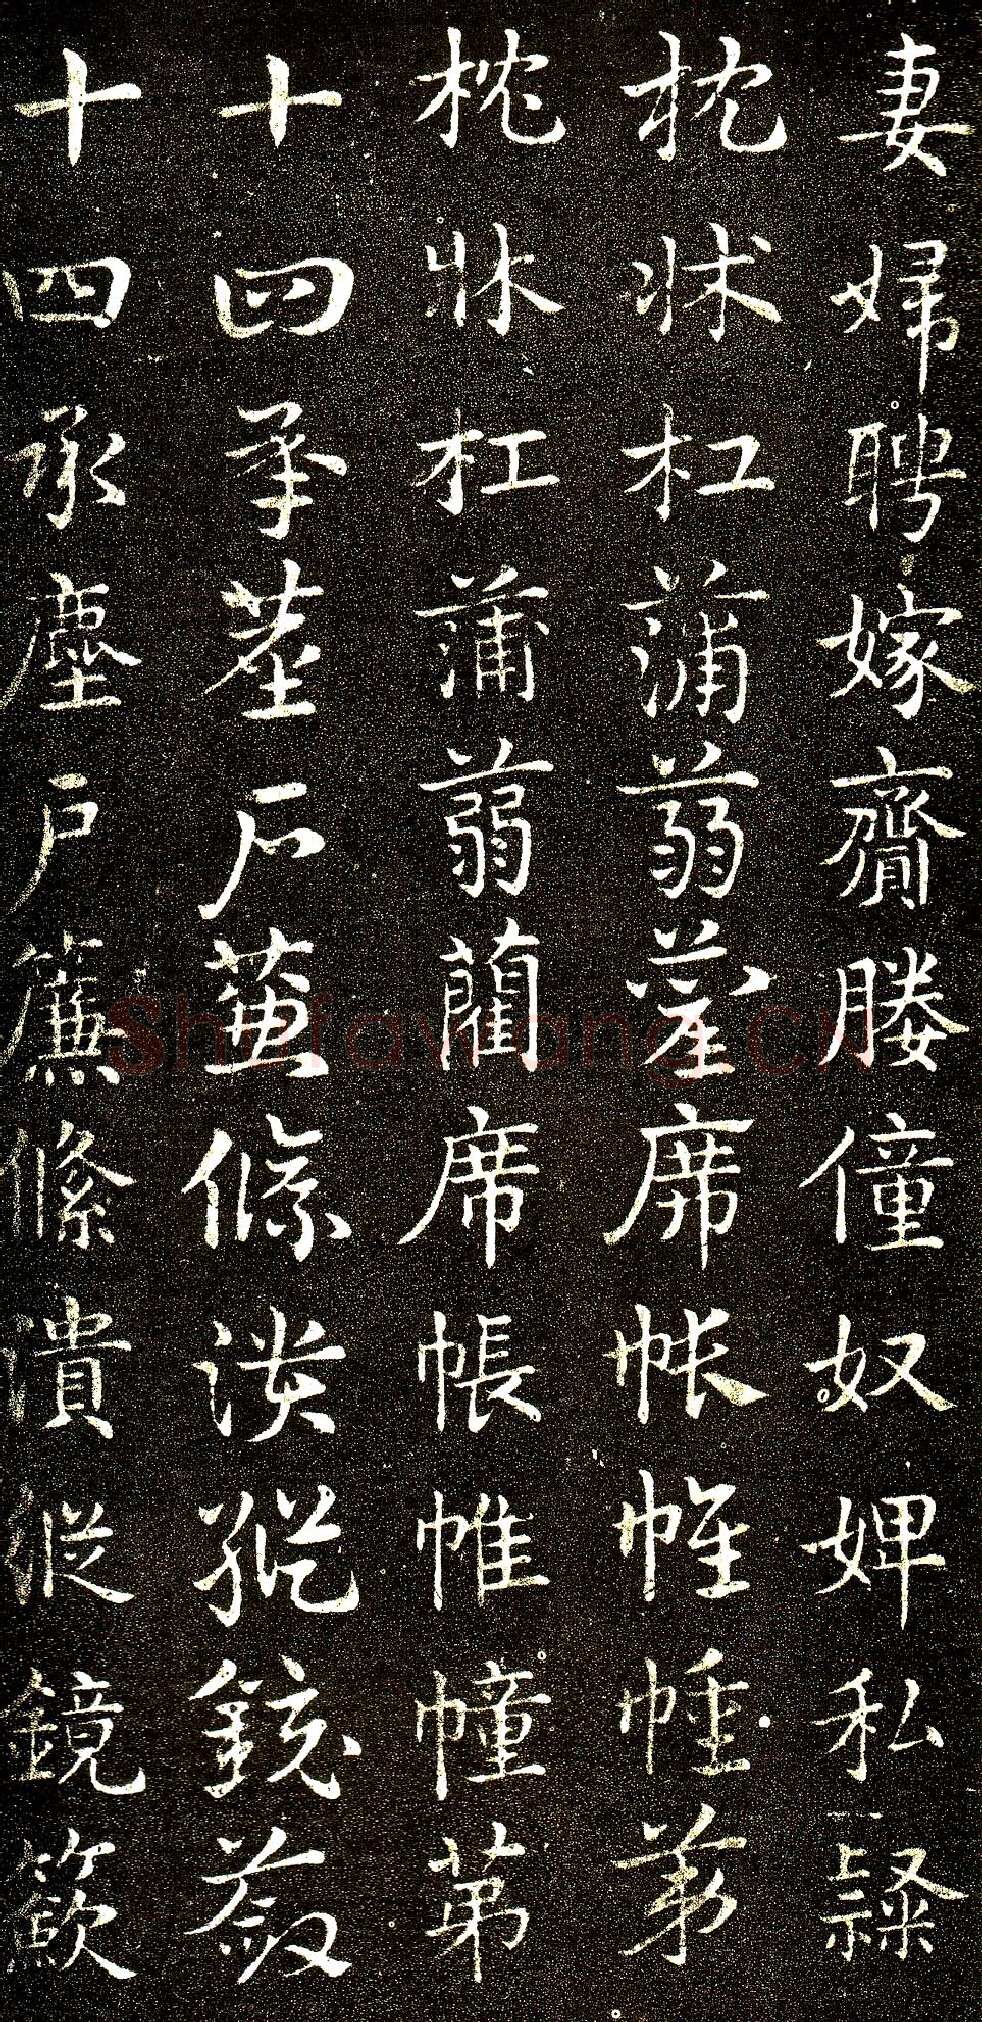 妻婦聘嫁齎媵僮奴婢私隸
枕牀杠蒲蒻藺席帳帷幢苐
枕牀杠蒲蒻藺席帳帷幢苐
十四承塵戶簾絛潰縱鏡籢
十四承塵戶簾絛潰從鏡籢
Shufawang.CN